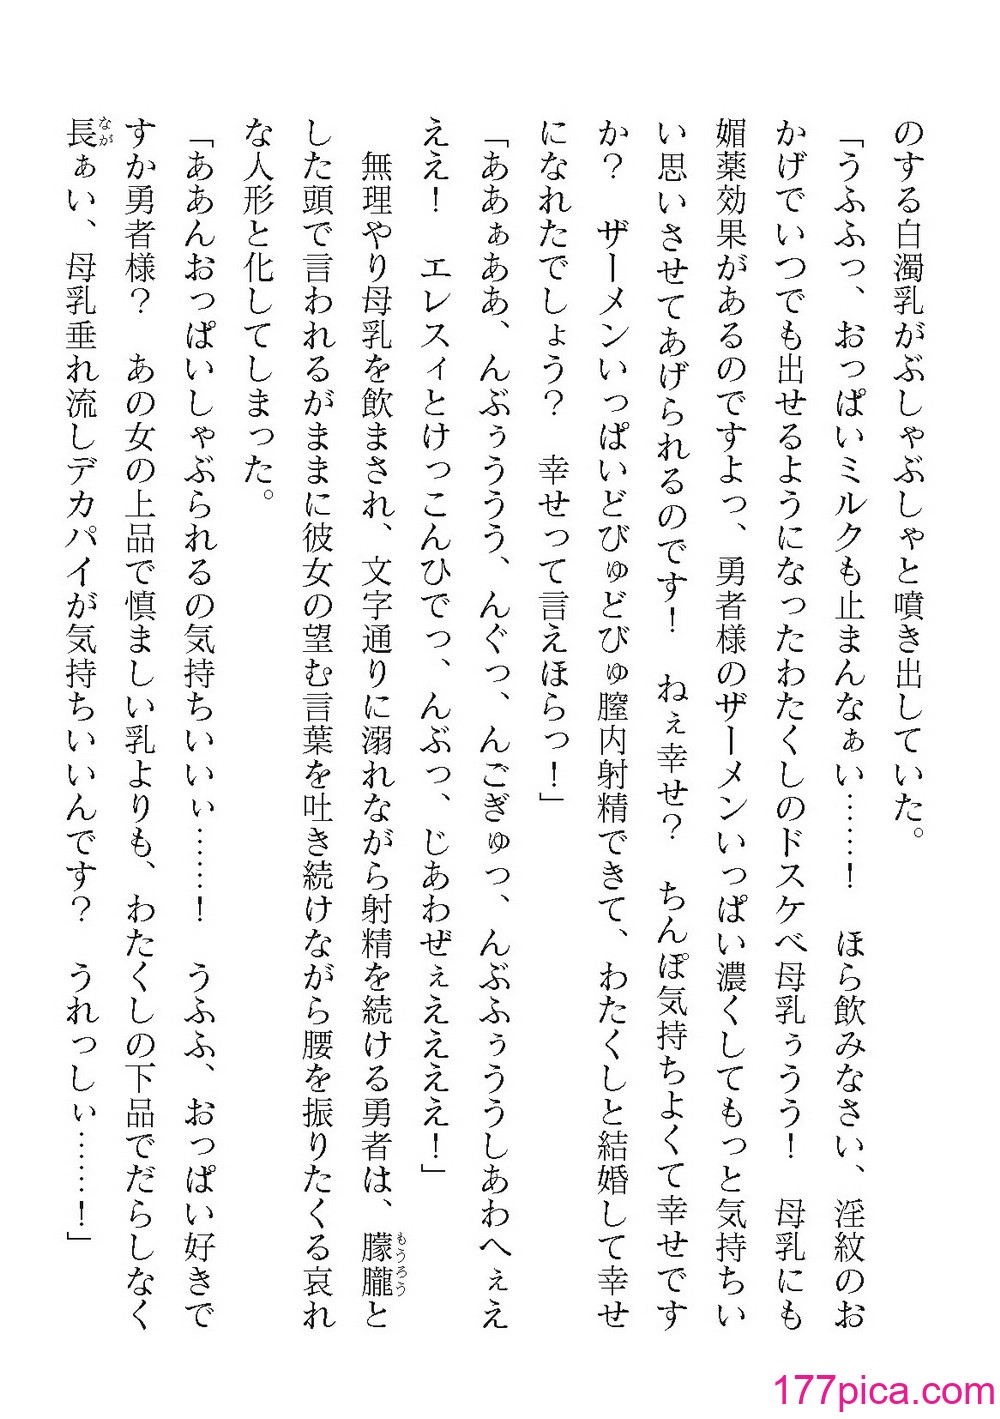 のする白濁乳がぶしゃぶしゃと噴き出していた。
「うふふっ、おっぱいミルクも止まんなぁい……！　ほら飲みなさい、淫紋のお
かげでいつでも出せるようになったわたくしのドスケベ母乳ぅうう！　母乳にも
媚薬効果があるのですよっ、勇者様のザーメンいっぱい濃くしてもっと気持ちい
い思いさせてあげられるのです！　ねぇ幸せ？　ちんぽ気持ちよくて幸せです
か？　ザーメンいっぱいどびゅどびゅ膣内射精できて、わたくしと結婚して幸せ
になれたでしょう？　幸せって言えほらっ！」
「ああぁああ、んぶぅううう、んぐっ、んごぎゅっ、んぶふぅううしあわへぇえ
ええ！　エレスィとけっこんひでっ、んぶっ、じあわぜぇええええ！」
無理やり母乳を飲まされ、文字通りに溺れながら射精を続ける勇者は、朦朧もうろうと
した頭で言われるがままに彼女の望む言葉を吐き続けながら腰を振りたくる哀れ
な人形と化してしまった。
「ああんおっぱいしゃぶられるの気持ちいいぃ……！　うふふ、おっぱい好きで
すか勇者様？　あの女の上品で慎ましい乳よりも、わたくしの下品でだらしなく
長ながぁい、母乳垂れ流しデカパイが気持ちいいんです？　うれっしぃ……！」
177pica.com